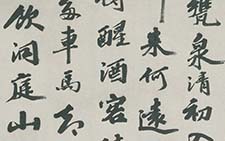 甕泉清初
来何遠
醒酒客
多車馬
飲洞庭山